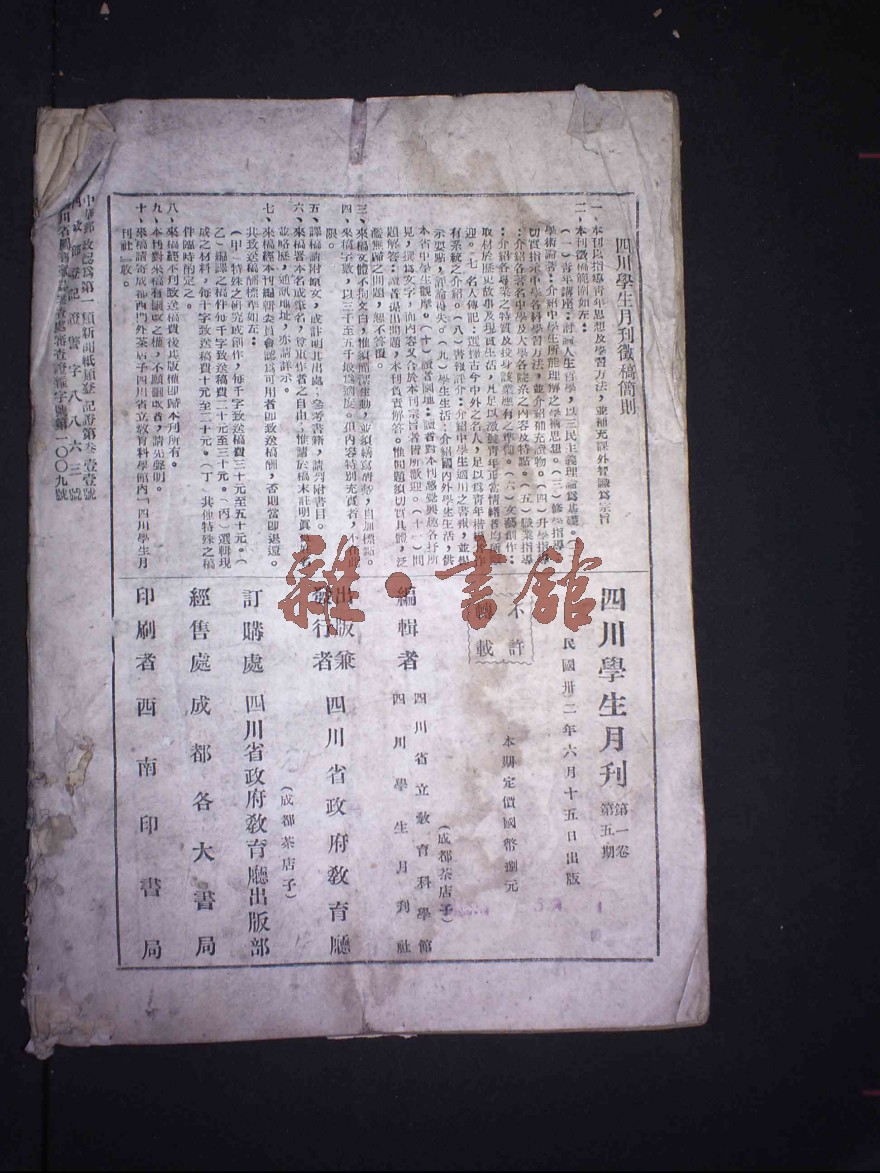 四川學生月刊徵稿簡則
一、本刊以指導靑年思想及學習方法，並補充課外智識爲宗旨
二、本刊徵稿範圍如左：
（一）靑年講座：討論人生哲學，以三民主義理論爲基礎。
學術論著：介紹中學生所能理解之學術思想。（三）修學指導：
切實指示中學各科學習方法，並介紹補充讀物。（四）升學指導
：介紹各著名中學及大學各院系之內容及特點。（五）職業指導
：介紹各專業之特質及投身該業應有之準備。（六）文藝創作：
取材於歷史故事及現實生活，凡足以激發靑年正當情緒者均所歡
迎。七、名人傳記：選擇古今中外之名人，足以爲靑年楷模
有系統之介紹。（八）書報評介：介紹中學生適用之書報，並舉
示要點，評論得失。（九）學生生活：介紹國內外學生生活，供
本省中學生觀摩。（十）讀者園地：讀者對本刊感覺興趣各抒所
見，撰爲文字，而內容又合於本刊宗旨者皆所歡迎。（十一）問
題解答：讀者提出問題，本刊負責解答。惟問題須切實具體，泛
濫無歸之問題，恕不答覆。
三、來稿文體不拘文白，惟須簡潔生動，並須繕寫淸楚，自加標點。
四、來稿字數，以三千至五千最爲適度。但內容特別充實者，不在此
限。
五、譯稿請附原文，或註明其出處；參考書籍，請列附書目。
六、來稿署本名或筆名，尊重作者之自由；惟請於稿末註明眞
並略歷，通訊地址，亦請詳示。
七、來稿經本刊編輯委員會認爲可用者卽致送稿酬，否則當卽退還。
其致送稿酬標準如左：
（甲）特殊之硏究或創作，每千字致送稿費三十元至五十元。（
乙）編譯之稿件每千字致送稿費二十元至三十元。（丙）選輯現
成之材料，每千字致送稿費十元至二十元。（丁）其他特殊之稿
件臨時酌定之。
八、來稿經本刊致送稿費後其版權卽歸本刊所有。
九、本刊對來稿有刪改之權，不願刪改者，請先聲明。
十、來稿請寄成都西門外茶店子四川省立敎育科學館內「四川學生月
刊社」收。
中華郵政認爲第一類新聞紙類登記證第叁壹壹號
內政部登記證警字八八六三號
四川省圖書雜誌審查處審查證雜字號第一〇〇九號
四川學生月刊 第一卷第五期
民國卅二年六月十五日出版
本期定價國幣捌元
不許
轉載
編輯者
四川省立敎育科學館
（成都茶店子）
四川學生月刊社
出版兼發行者 四川省政府敎育廳
（成都茶店子）
訂購處 四川省政府敎育廳出版部
經售處 成都各大書局
印刷者 西南印書局
雜·書館